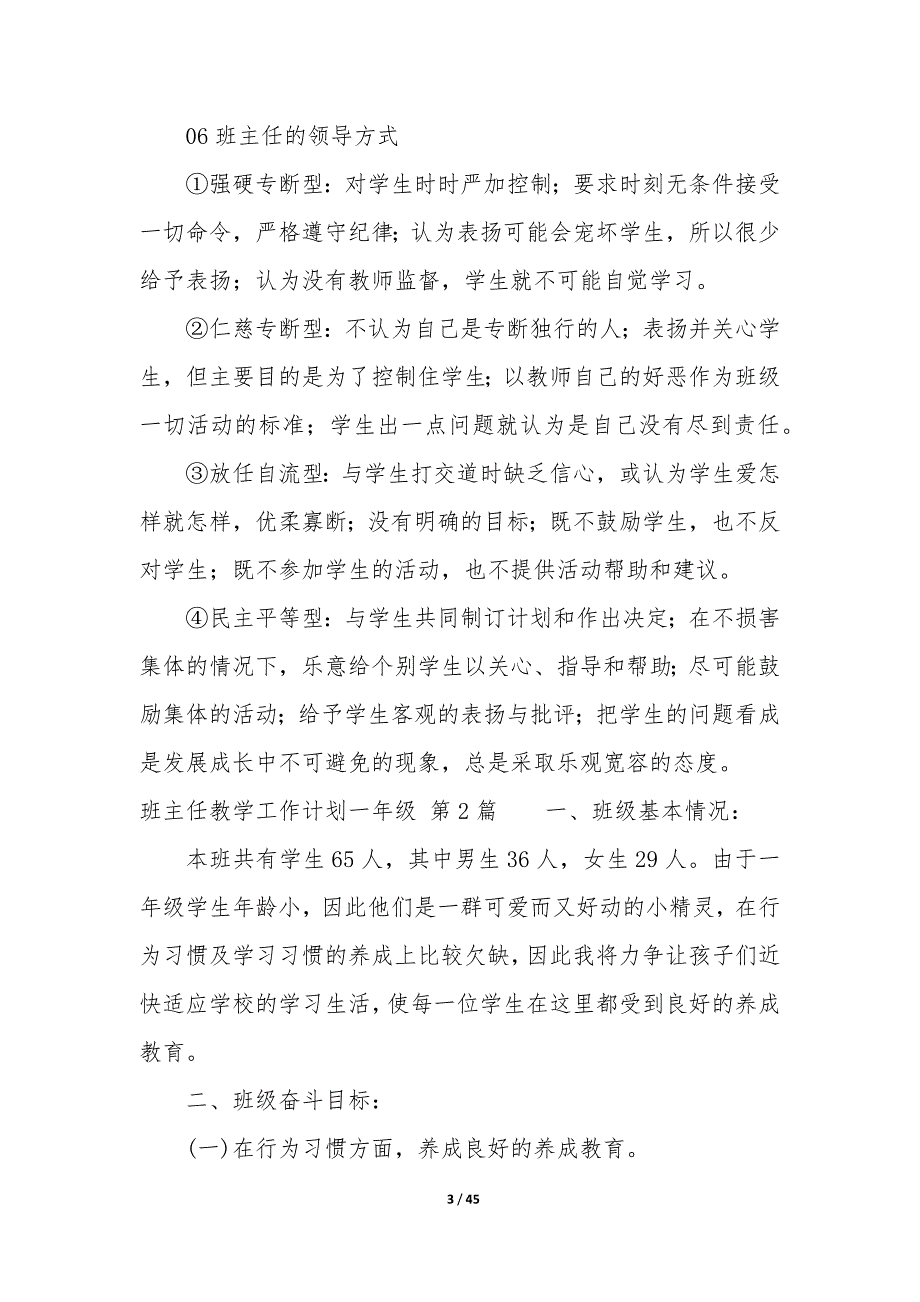 06班主任的领导方式
①强硬专断型：对学生时时严加控制；要求时刻无条件接受
一切命令，严格遵守纪律；认为表扬可能会宠坏学生，所以很少
给予表扬；认为没有教师监督，学生就不可能自觉学习。
②仁慈专断型：不认为自己是专断独行的人；表扬并关心学
生，但主要目的是为了控制住学生；以教师自己的好恶作为班级
一切活动的标准；学生出一点问题就认为是自己没有尽到责任。
③放任自流型：与学生打交道时缺乏信心，或认为学生爱怎
样就怎样，优柔寡断；没有明确的目标；既不鼓励学生，也不反
对学生；既不参加学生的活动，也不提供活动帮助和建议。
④民主平等型：与学生共同制订计划和作出决定；在不损害
集体的情况下，乐意给个别学生以关心、指导和帮助；尽可能鼓
励集体的活动；给予学生客观的表扬与批评；把学生的问题看成
是发展成长中不可避免的现象，总是采取乐观宽容的态度。
班主任教学工作计划一年级 第2篇　　一、班级基本情况：
本班共有学生65人，其中男生36人，女生29人。由于一
年级学生年龄小，因此他们是一群可爱而又好动的小精灵，在行
为习惯及学习习惯的养成上比较欠缺，因此我将力争让孩子们近
快适应学校的学习生活，使每一位学生在这里都受到良好的养成
教育。
二、班级奋斗目标：
(一)在行为习惯方面，养成良好的养成教育。
3 / 45